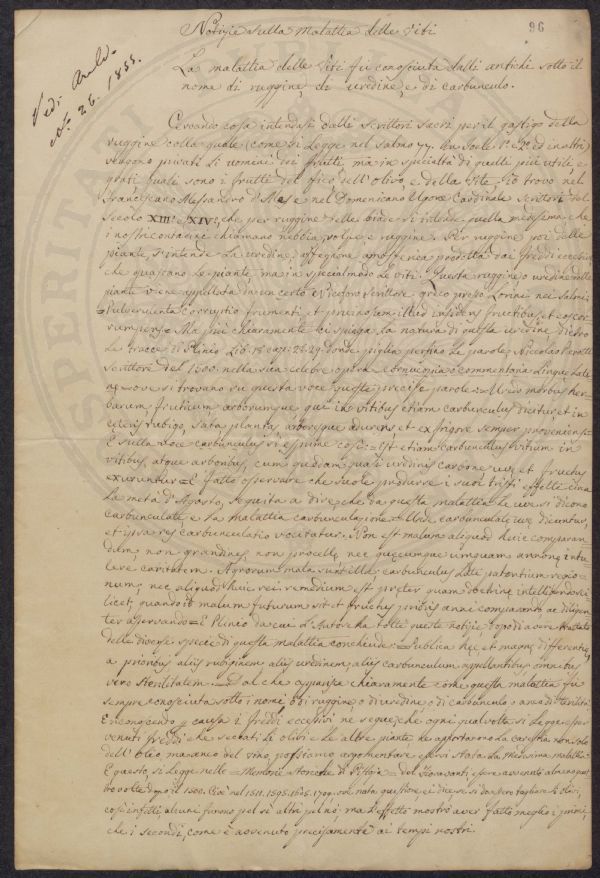 Notizie sulla malattia delle viti
96
Vedi Arald.
26. 1855.
La malattia delle Viti fu conosciuta dalli antichi sotto il
nome di ruggine, di uredine, e di carbunculo.
Cercando cosa intendasi dalli scrittori sacri per il gastigo della
ruggine colla quale (come si legge nel Salmo 77.
vengono privati gli uomini dei frutti, ma in specialtà di quelli più utili e
grati quali sono i frutti del fico, dell'olivo, e della Vite, Io trovo nel
Francescano Alessandro d'Ales e nel Domenicano Ugone Cardinale Scrittori del
Secolo XIII e XIV, che per ruggine delle biade s'intende quella medesima che
i nostri contadini chiamano nebbia, volpe e ruggine. Per ruggine poi delle
piante, s'intende la uredine, affezione prodotta dai freddi eccessivi
che guastano le piante, ma in special modo le viti. Questa ruggine o uredine delle
piante viene appellata da un certo Niceforo scrittore greco presso Lorino nei Salmi:
Pulverulenta corruptio frumenti, et pruinosum illud insidens fructibus et eos cor-
rumpens. Ma più chiaramente ci spiega la natura di questa uredine dietro
le tracce di Plinio Lib. 18 cap: 28. 29. donde piglia perfino le parole, Niccolao Perotti
scrittore del 1500. nella sua celebre opera Cornucopia o commentaria Linguæ Lati-
næ dove si trovano su questa voce queste precise parole = Uredo morbus her-
barum, fruticum arborumque qui in vitibus etiam carbunculus dicitur, et in
rubigo, sata plantas arboresque adurens et ex frigore semper proveniens =
E sulla voce carbunculus si esprime così: = Est etiam carbunculus vitium in
vitibus, atque arboribus, cum quædam quasi uredinis carbone uvæ et fructus
exuruntur = E fatto osservare che suole produrre i suoi tristi effetti circa
la metà d'Agosto, seguita a dire, che da questa malattia le uve si dicono
carbunculate, e la malattia carbunculazione = Unde carbunculatæ uvæ dicuntur,
et ipsa res carbunculatio vocitatur. Non est malum aliquod huic comparan-
dum, non grandines, non procellæ, nec quæcumque umquam annonæ intu-
lere caritatem. Agrorum mala sunt illa carbunculus late patentium regio-
num; nec aliquod huic rei remedium est præter quam
licet, quando id malum futurum sit et fructus prioris anni comparando ac diligen-
ter asservando = E Plinio da cui d'Autore ha tolte queste notizie dopo di avere trattato
delle diverse specie di questa malattia conchiude: = Publica hæc et magna differentia,
a prioribus aliis rubiginem, aliis uredinem, aliis carbunculum appellantibus, omnibus
vero sterilitatem. = Dal che apparisce chiaramente come questa malattia fu
sempre conosciuta sotto i nomi, o di ruggine, o di uredine, o di carbunculo, o anco di sterilità
E riconoscendo p causa i freddi eccessivi ne segue, che ogni qualvolta si legge esser
venuti freddi che seccati le olivi e le altre piante, ne apportarono la carestia non solo
dell'olio, ma anco del vino, possiamo argomentare esservi stata la medesima malattia.
E questo, si legge nelle = Memorie Storiche di Pistoja = del Fioravanti, essere avvenuto almeno quat-
tro volte dopo il 1500. Cioè nel 1511. 1595. 1608. 1709. ove nata questione, ei dice, se si dovevano tagliare gli olivi,
così infetti, alcuni furono pel sì altri pel nò; ma l'effetto mostrò aver fatto meglio i primi,
che i secondi, come è avvenuto precisamente ai tempi nostri.